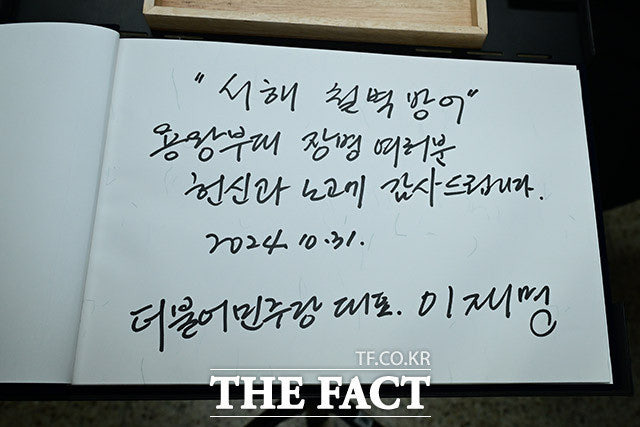 "서해 철벽방어"
용왕부대 장병 여러분
헌신과 노고에 감사드립니다.
2024. 10. 31.
더불어민주당 대표. 이재명
TF.CO.KR
THE FACT